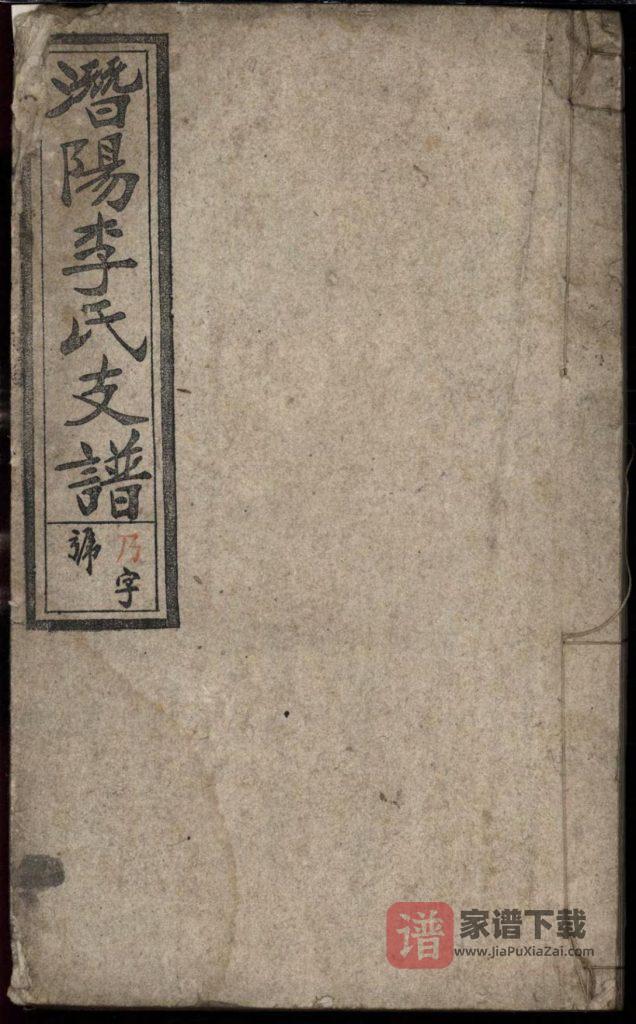 潛陽李氏支譜
乃字
號
谱
家谱下载
www.jiaPuXiaZai.com